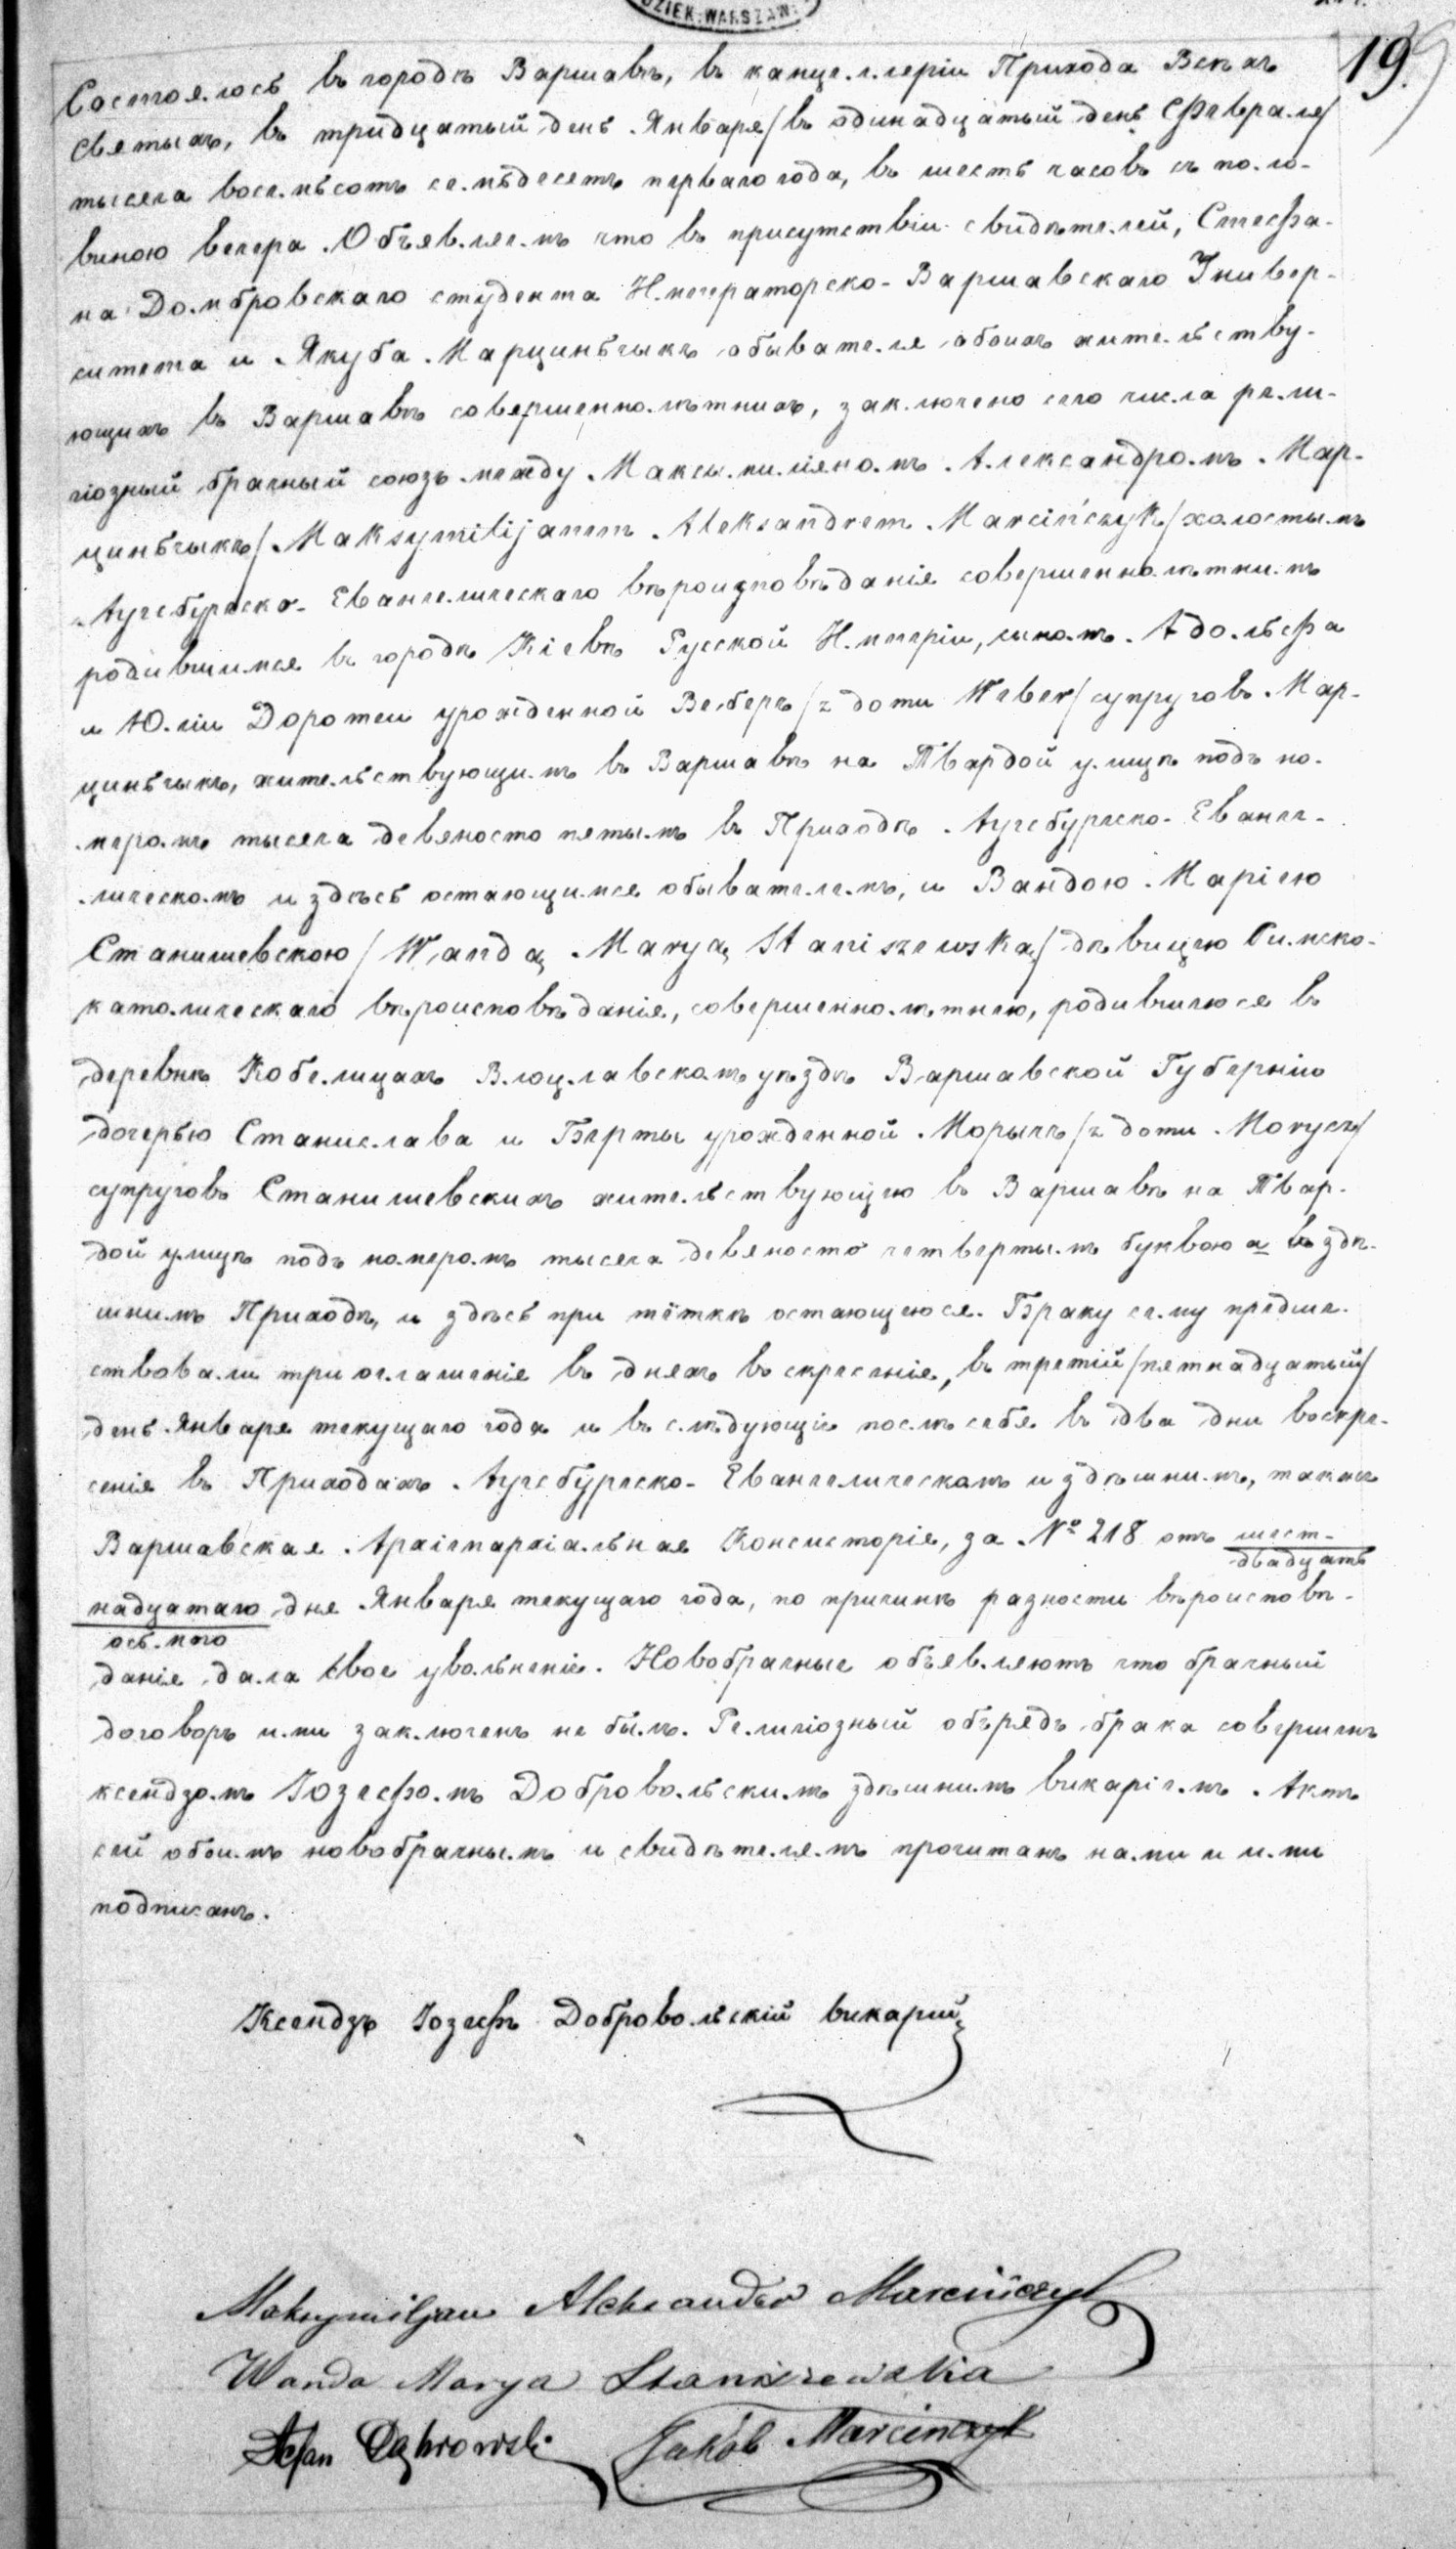 DZIEK. WARSZAW.
19.
Состоялось въ городѣ Варшавѣ, въ канцеллеріи Прихода Всѣхъ
Святыхъ, въ тридцатый день Января /въ одинадцатый день Февраля/
тысяча восемьсотъ семьдесятъ перваго года, въ шесть часовъ съ поло-
виною вечера. Объявляемъ что въ присутствіи свидѣтелей, Стефа-
на Домбровскаго студента Императорско-Варшавскаго Универ-
ситета и Якуба Марциньчыкъ обывателя обоихъ жительству-
ющихъ въ Варшавѣ совершеннолѣтнихъ, заключено сего числа рели-
гіозный брачный союзъ между Максымиліяномъ Александромъ Мар-
циньчыкъ /Maksymilijanem Aleksandrem Marcińczyk/ холостымъ
Аугсбургско-Евангелическаго вѣроизповѣданія совершеннолѣтнимъ
родившимся въ городѣ Кіевѣ Русской Имперіи, сыномъ Адольфа
и Юліи Доротеи урожденной Веберъ /z domu Weber/ супруговъ Мар-
циньчыкъ, жительствующимъ въ Варшавѣ на Твардой улицѣ подъ но-
меромъ тысяча девяносто пятымъ въ Приходѣ Аугсбургско-Еванге-
лическомъ и здѣсь остающимся обывателемъ, и Вандою Маріею
Станишевскою /Wandą Maryą Staniszewską/ дѣвицею Римско-
католическаго вѣроисповѣданія, совершеннолѣтнею, родившеюся въ
деревнѣ Кобелицахъ Влоцлавскомъ уѣздѣ Варшавской Губерніи
дочерью Станислава и Берты урожденной Морычъ /z domu Morycz/
супруговъ Станишевскихъ жительствующею въ Варшавѣ на Твар-
дой улицѣ подъ номеромъ тысяча девяносто четвертымъ буквою а въ здѣ-
шнимъ Приходѣ, и здѣсь при тёткѣ остающеюся. Браку сему предше-
ствовали три оглашенія въ дняхъ воскресенія, въ третій /пятнадцатый/
день Января текущаго года и въ слѣдующіе послѣ себя въ два дни воскре-
сенія въ Приходахъ Аугсбургско-Евангелическомъ и здѣшнимъ, такжъ
Варшавская Архіепархіальная Консисторія, за № 218 отъ шест-
двадцать
надцатаго дня Января текущаго года, по причинѣ разности вѣроисповѣ-
осьмого
данія дала свое увольненіе. Новобрачные объявляютъ что брачный
договоръ ими заключенъ не былъ. Религіозный обрядъ брака совершенъ
ксендзомъ Іозефомъ Добровольскимъ здѣшнимъ викаріемъ. Актъ
сей обоимъ новобрачнымъ и свидѣтелямъ прочитанъ нами и ими
подписанъ.
Ксендзъ Іозефъ Добровольскій викарій
Maksymiljan Aleksander Marcińczyk
Wanda Marya Staniszewska
Stefan Dąbrowski Jakób Marcinczyk